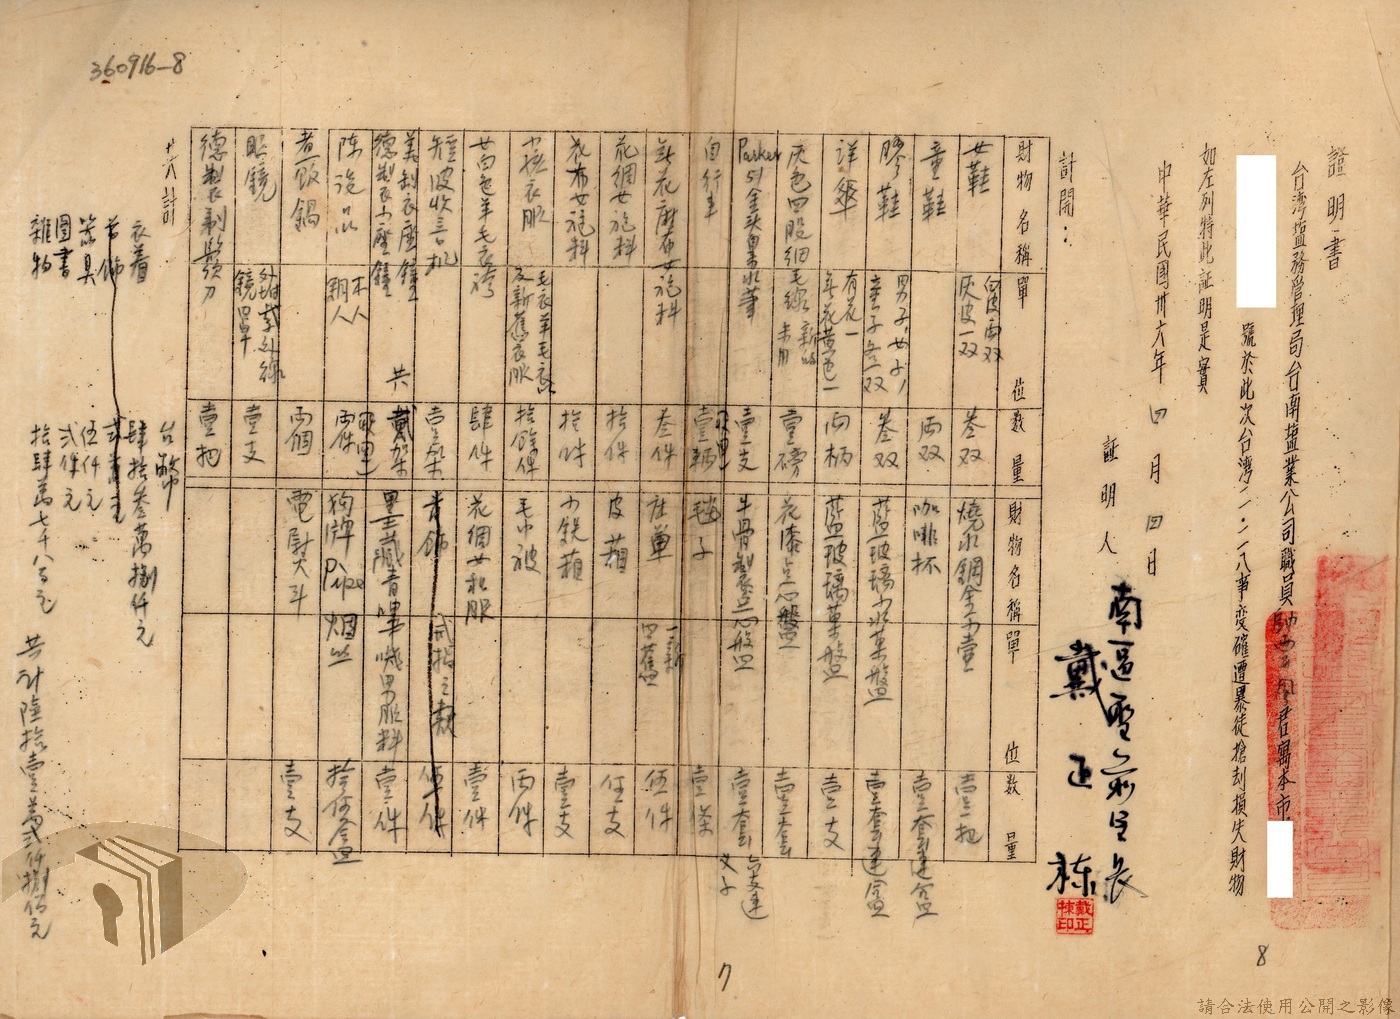 360916-8
證明書
台湾塩務管理局台南塩業公司職員
君寓本市
號於此次台湾二·二八事变確遭暴徒搶刦損失財物
如左列特此証明是實
中華民國卅六年四月四日
証明人
南區區前里長
戴正棟
戴正棟印
計開：
財物名稱 單位 數量 財物名稱 單位 數量
女鞋 白皮兩双 灰皮一双 叁双 燒水鋼金水壺 壹把
童鞋 兩双 咖啡杯 壹套連盒
膠鞋 男子、女子、童子各一双 叁双 藍玻璃水菓盤 壹套連盒
洋傘 有花一 無花黄色一 兩柄 藍玻璃菓盤 壹支
灰色四股細毛線 新的未用 壹磅 花漆点心盤 壹套
Parker 51金头墨水筆 壹支 牛骨製点心盤 壹套
自行車 壹輛 毯子 壹條
新花麻布女袍料 叁件 床單 一新 四舊 伍件
花綢女袍料 拾件 皮箱 伍支
花布女袍料 拾件 小銳箱 壹支
小孩衣服 毛衣羊毛衣及新舊衣服 拾餘件 毛巾被 兩件
女白色羊毛衣袴 肆件 花綢女衣服 壹件
短波收音机 壹架 首飾 戒指之類 伍件
美制衣座鐘 德製小座鐘 共 貳架 黑藏青嗶嘰男服料 壹件
陈設品 木人 銅人 兩件 狗牌Pipe烟丝 拾伍盒
煮飯鍋 兩個 電熨斗 壹支
眼鏡 鏡罩 壹支
德製衣剃鬍刀 壹把
共計
衣着 台幣 肆拾叁萬捌仟元
首飾
器具 伍仟元
圖書 弍仟元
雜物 拾肆萬七千八百元
共計陸拾壹萬弍仟捌佰元
7
8
請合法使用公開之影像